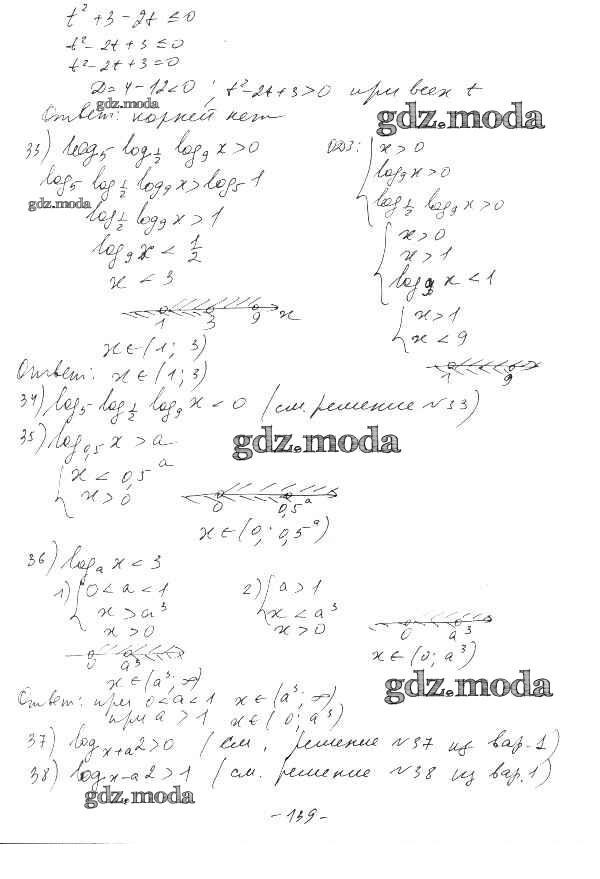 t² + 3 - 2t ≤ 0
t² - 2t + 3 ≤ 0
t² - 2t + 3 = 0
D = 4 - 12 < 0 ; t² - 2t + 3 > 0 при всех t
gdz.moda
Ответ: корней нет
gdz.moda
33) log₅ log_{1/2} log₉ x > 0
log₅ log_{1/2} log₉ x > log₅ 1
gdz.moda
log_{1/2} log₉ x > 1
log₉ x < 1/2
x < 3
1 3 9 x
x ∈ (1; 3)
Ответ: x ∈ (1; 3)
ОДЗ: { x > 0
log₉ x > 0
log_{1/2} log₉ x > 0
{ x > 0
x > 1
log₉ x < 1
{ x > 1
x < 9
1 9
34) log₅ log_{1/2} log₉ x < 0 (см. решение №33)
35) log_{0,5} x > a
gdz.moda
{ x < 0,5^a
x > 0
0 0,5^a
x ∈ (0; 0,5^a)
36) log_a x < 3
1) { 0 < a < 1
x > a³
x > 0
0 a³
x ∈ (a³; ∞)
2) { a > 1
x < a³
x > 0
0 a³
x ∈ (0; a³)
gdz.moda
Ответ: при 0 < a < 1 x ∈ (a³; ∞)
при a > 1 x ∈ (0; a³)
37) log_{x+a} 2 > 0 (см. решение №37 из вар. 1)
38) log_{x-a} 2 > 1 (см. решение №38 из вар. 1)
gdz.moda
- 139 -